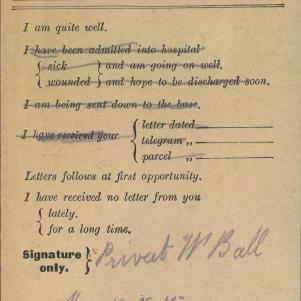 I am quite well.
I have been admitted into hospital
sick and am going on well.
wounded and hope to be discharged soon.
I am being sent down to the base.
I have received your
letter dated
telegram ,,
parcel ,,
Letters follows at first opportunity.
I have received no letter from you
lately.
for a long time.
Signature only.
Privat W Ball